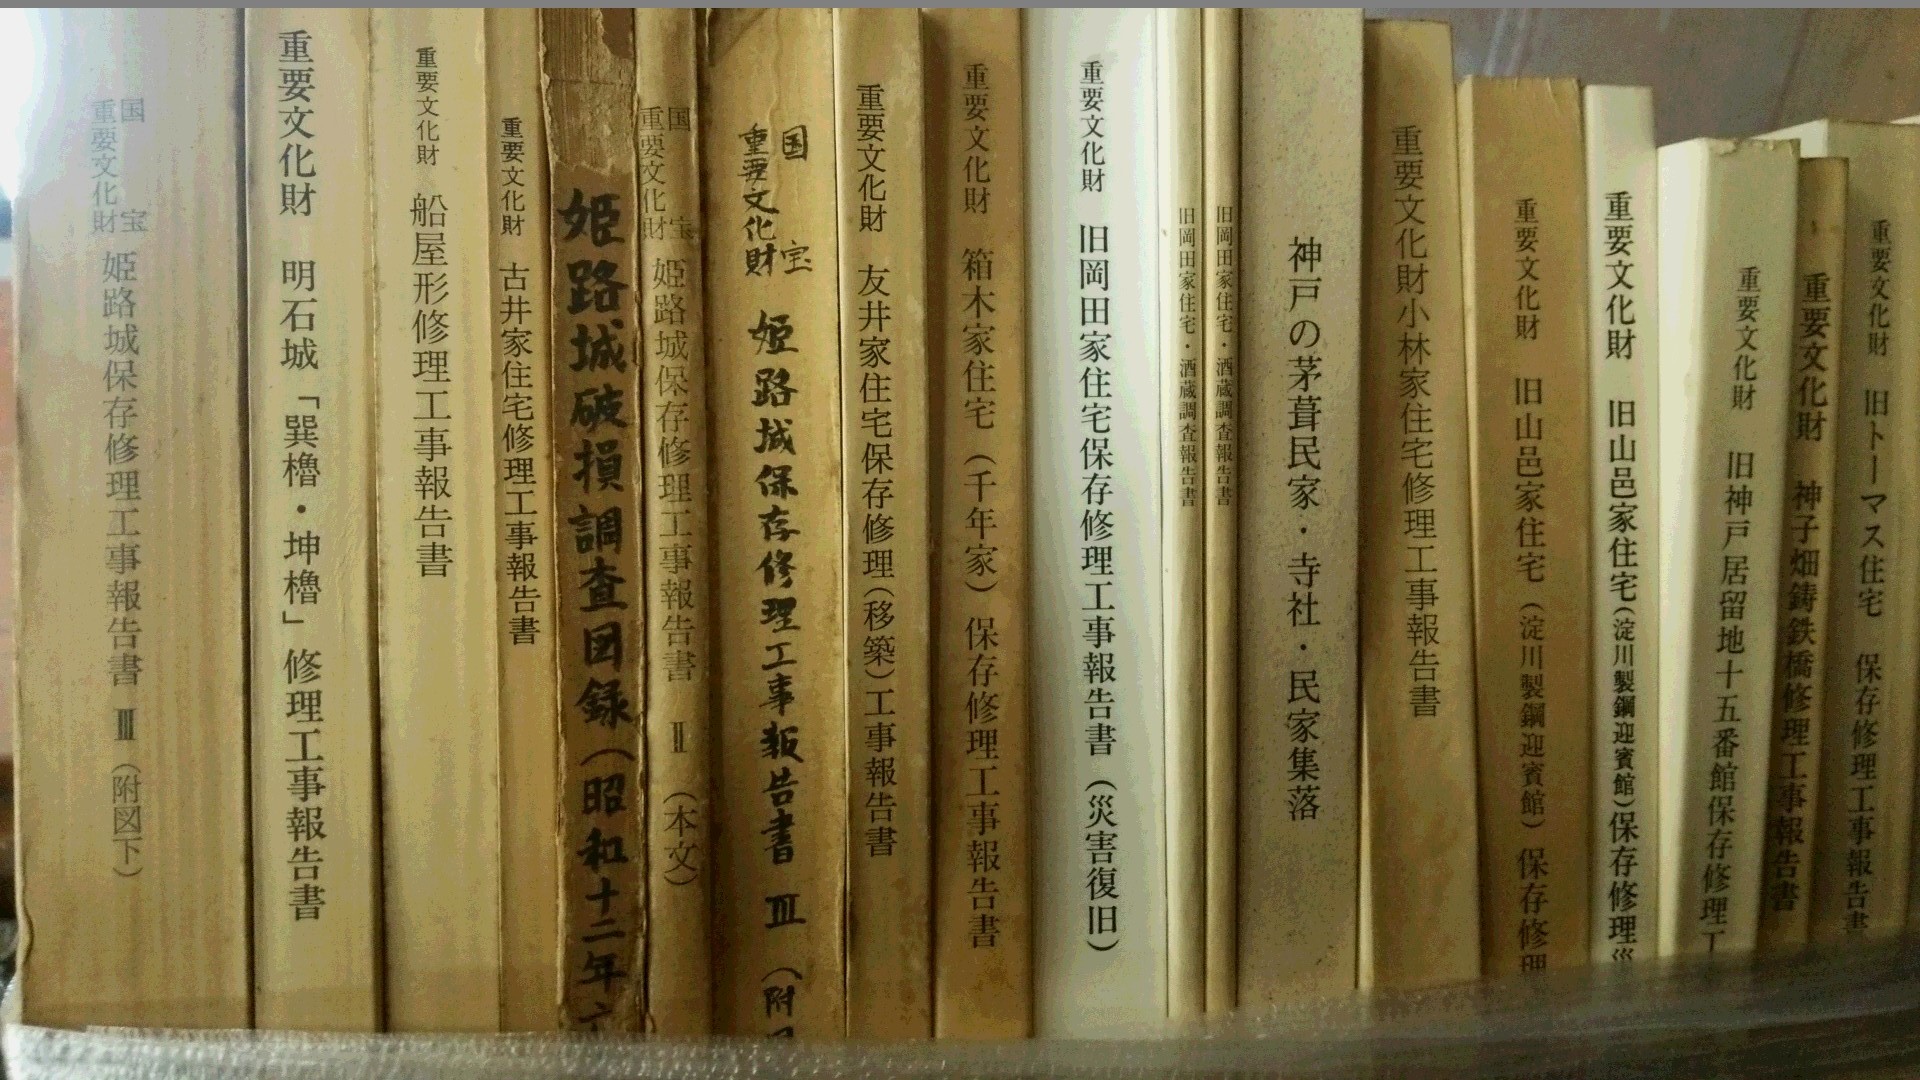 国宝 重要文化財 姫路城保存修理工事報告書 Ⅲ (附図下)
重要文化財 明石城「巽櫓・坤櫓」修理工事報告書
重要文化財 船屋形修理工事報告書
重要文化財 古井家住宅修理工事報告書
姫路城破損調査図録(昭和十二年六
国宝 重要文化財 姫路城保存修理工事報告書 Ⅱ (本文)
国宝 重要文化財 姫路城保存修理工事報告書 Ⅲ (附図
重要文化財 友井家住宅保存修理(移築)工事報告書
重要文化財 箱木家住宅(千年家)保存修理工事報告書
重要文化財 旧岡田家住宅保存修理工事報告書(災害復旧)
旧岡田家住宅・酒蔵調査報告書
旧岡田家住宅・酒蔵調査報告書
神戸の茅葺民家・寺社・民家集落
重要文化財小林家住宅修理工事報告書
重要文化財 旧山邑家住宅(淀川製鋼迎賓館)保存修理
重要文化財 旧山邑家住宅(淀川製鋼迎賓館)保存修理災
重要文化財 旧神戸居留地十五番館保存修理工
重要文化財 神子畑鋳鉄橋修理工事報告書
重要文化財 旧トーマス住宅 保存修理工事報告書